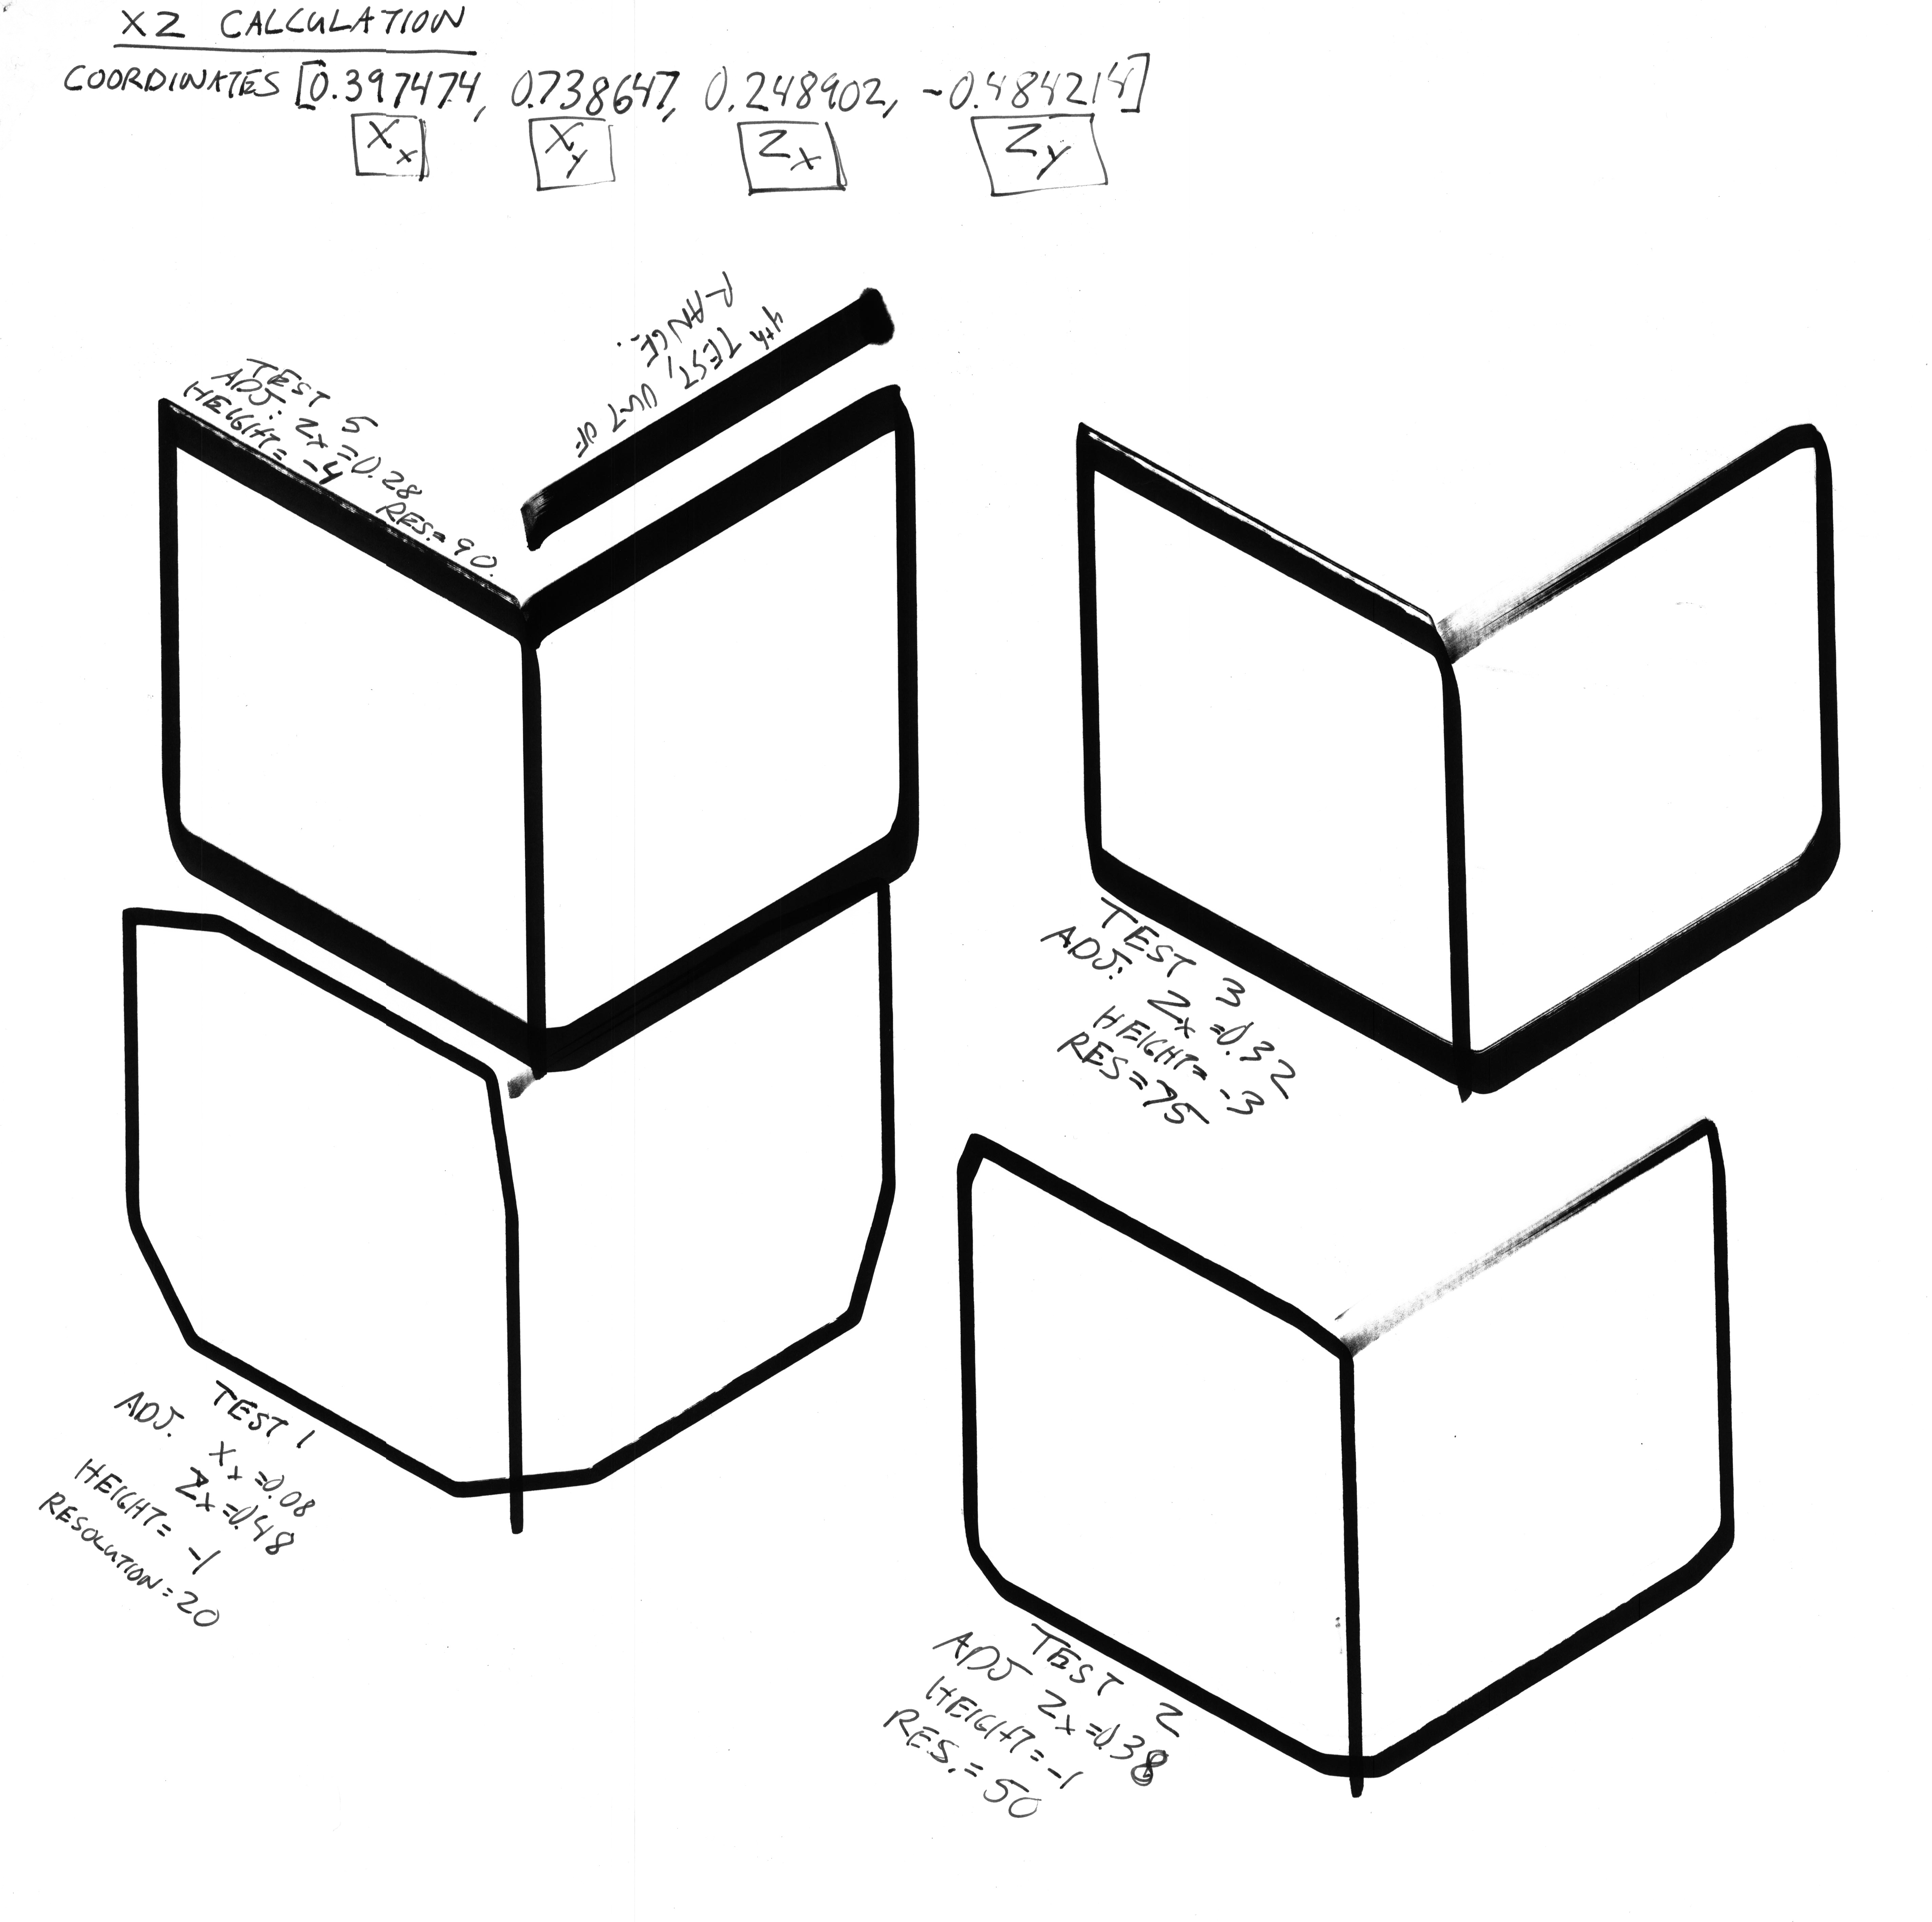 XZ CALCULATION
COORDINATES [0.397474, 0.738647, 0.248902, -0.484214]
Xx
Xy
Zx
Zy
4th TEST OUT OF
RANGE.
TEST 5
ADJ: Zx = 0.28
HEIGHT = -4 RES. = 90.
TEST 3
ADJ: Zx = 0.32
HEIGHT = -3
RES = 75
TEST 1
ADJ. Xx = 0.08
Zx = 0.48
HEIGHT = -1
RESOLUTION = 20
TEST 2
ADJ Zx = 0.38
HEIGHT = -1
RES. = 50